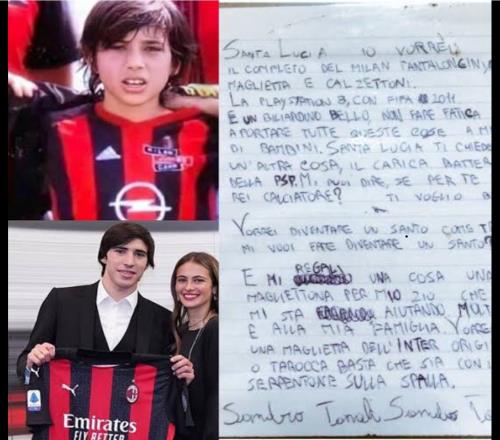 SANTA LUCIA IO VORREI
IL COMPLETO DEL MILAN PANTALONCINI,
MAGLIETTA E CALZETTONI.
LA PLAYSTATION 3, CON FIFA 2011
E UN BILIARDINO BELLO, NON FARE FATICA
A PORTARE TUTTE QUESTE COSE A MI
DI BAMBINI. SANTA LUCIA TI CHIEDE
UN'ALTRA COSA, IL CARICA BATTER
DELLA PSP. MI PUOI DIRE, SE PER TE
TI VOGLIO B
VORREI DIVENTARE UN SANTO COME T
MI VUOI FARE DIVENTARE UN SANTO?
E MI REGALI UNA COSA UNA
MAGLIETTONA PER MIO ZIO CHE
MI STA AIUTANDO MOLT
E ALLA MIA FAMIGLIA. VORRE
UNA MAGLIETTA DELL'INTER ORIGI
O TAROCCA BASTA CHE SIA CON I
SERPENTONE SULLA SPALLA.
Sandro Tonali Sandro To
MILAN
JUNIOR
CAMP
OPEL
Emirates
FLY BETTER